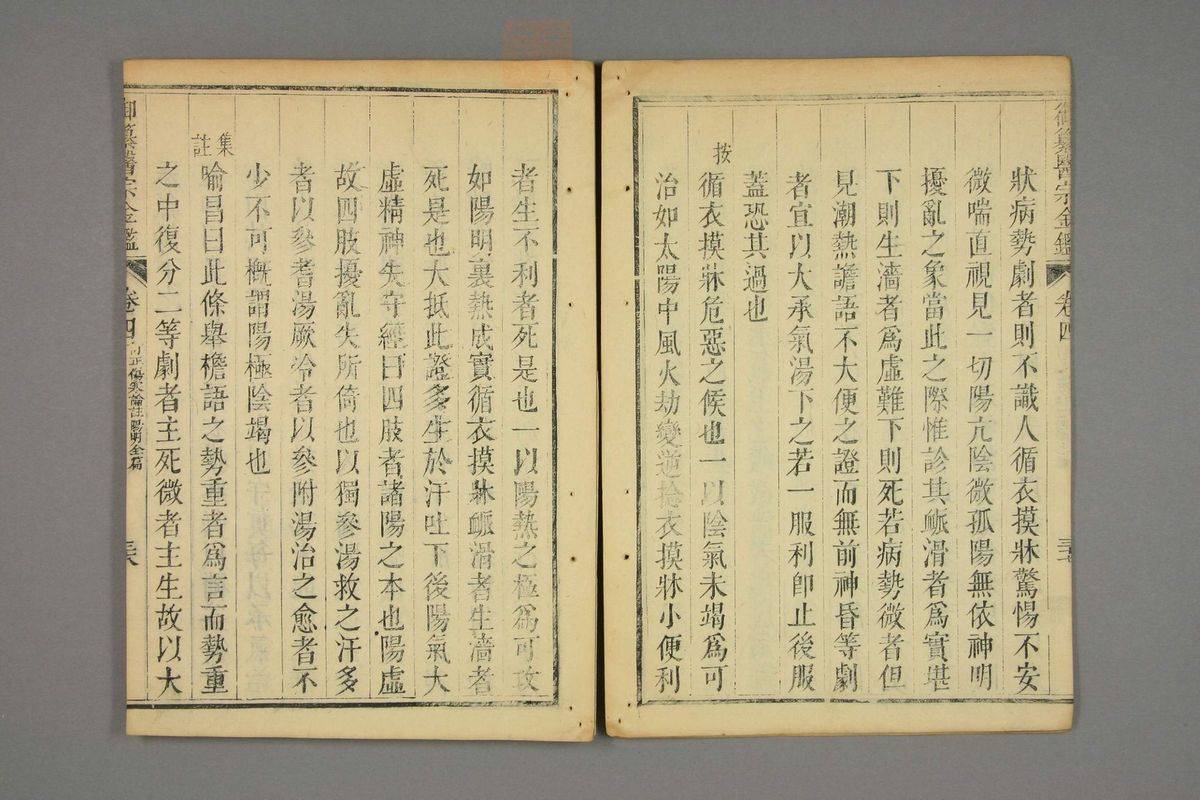 御纂醫宗金鑑 卷四
狀病勢劇者則不識人循衣摸牀驚惕不安
微喘直視見一切陽亢陰微孤陽無依神明
擾亂之象當此之際惟診其𧖴滑者爲實堪
下則生濇者爲虛難下則死若病勢微者但
見潮熱譫語不大便之證而無前神昏等劇
者宜以大承氣湯下之若一服利卽止後服
蓋恐其過也
按
循衣摸牀危惡之候也一以陰氣未竭爲可
治如太陽中風火劫變逆捻衣摸牀小便利
者生不利者死是也一以陽熱之極爲可攻
如陽明裏熱成實循衣摸牀𧖴滑者生濇者
死是也大抵此證多生於汗吐下後陽氣大
虛精神失守經曰四肢者諸陽之本也陽虛
故四肢擾亂失所倚也以獨參湯救之汗多
者以參耆湯厥冷者以參附湯治之愈者不
少不可槪謂陽極陰竭也
集註
喻昌曰此條舉譫語之勢重者爲言而勢重
之中復分二等劇者主死微者主生故以大
御纂醫宗金鑑 卷四 訂正傷寒論註陽明全篇